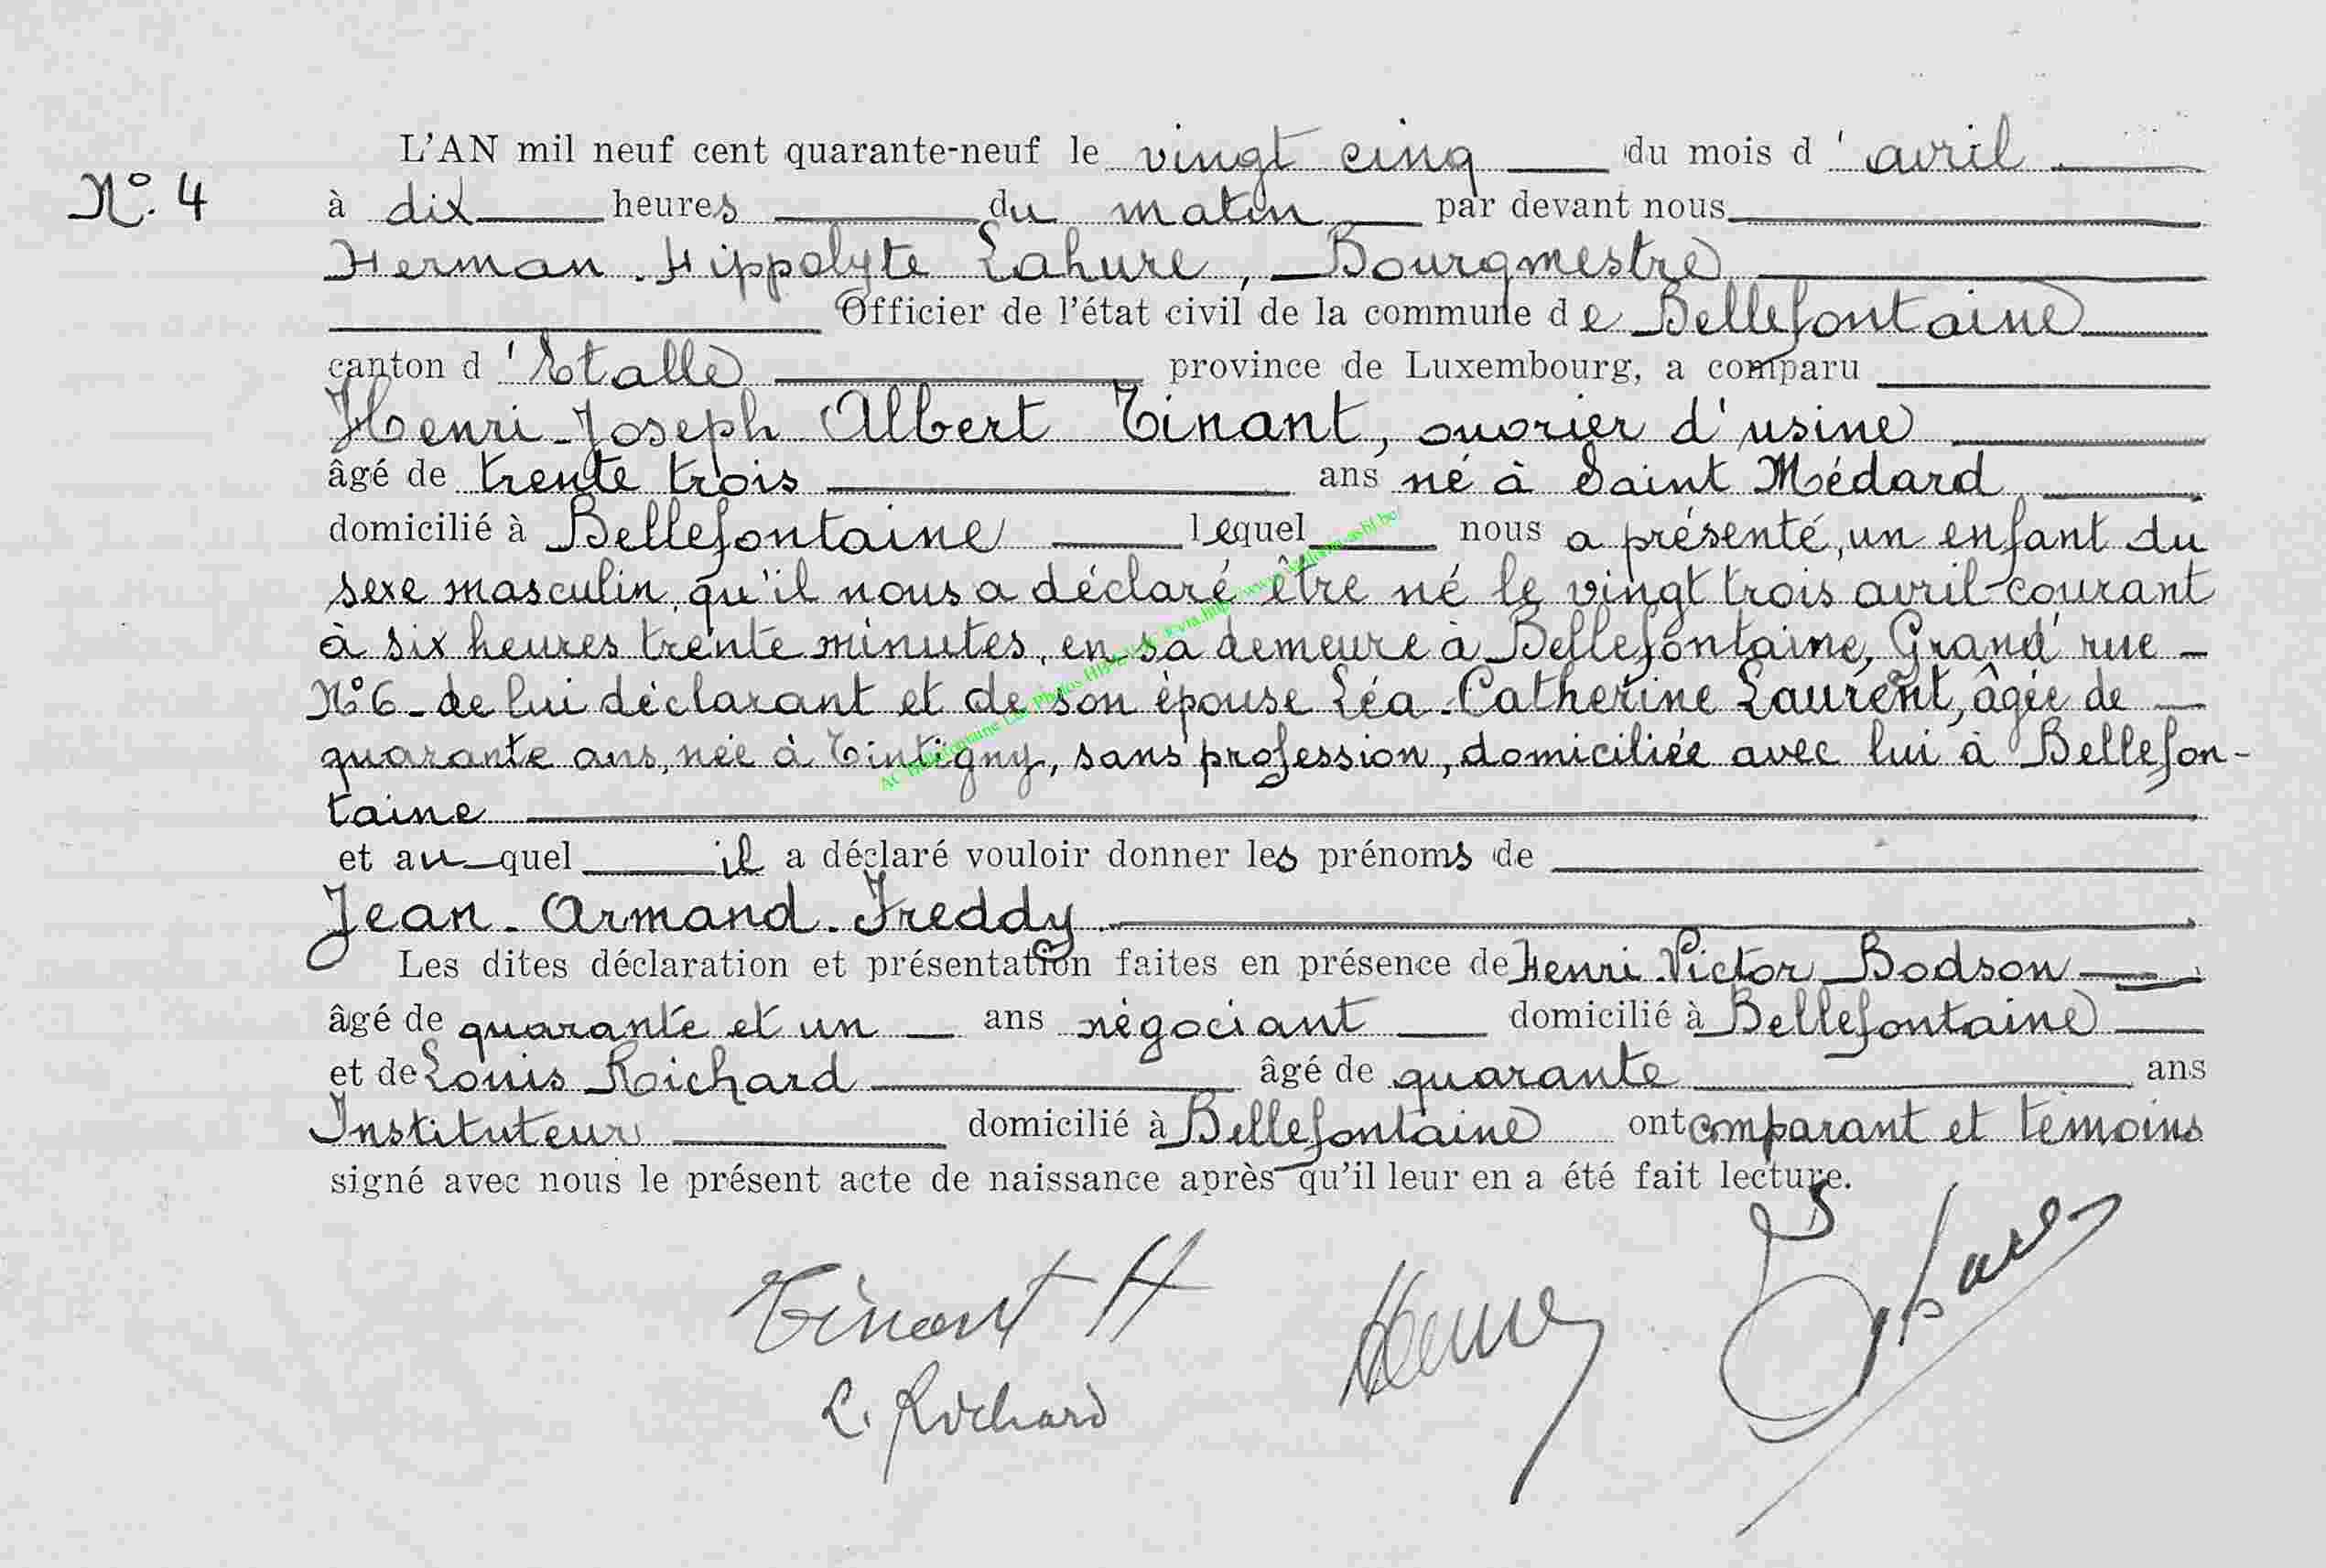 L'AN mil neuf cent quarante-neuf le vingt cinq du mois d'avril
N° 4
à dix heures du matin par devant nous
Herman-Hippolyte Lahure, Bourgmestre
Officier de l'état civil de la commune de Bellefontaine
canton d'Etalle province de Luxembourg, a comparu
Henri-Joseph Albert Tinant, ouvrier d'usine
âgé de trente trois ans né à Saint Médard
domicilié à Bellefontaine lequel nous a présenté, un enfant du
sexe masculin, qu'il nous a déclaré être né le vingt trois avril-courant
à six heures trente minutes, en sa demeure à Bellefontaine, Grand' rue -
N° 6 - de lui déclarant et de son épouse Léa-Catherine Laurent, âgée de
quarante ans, née à Tintigny, sans profession, domiciliée avec lui à Bellefon-
taine
et auquel il a déclaré vouloir donner les prénoms de
Jean-Armand-Freddy
Les dites déclaration et présentation faites en présence de Henri-Victor Bodson
âgé de quarante et un ans négociant domicilié à Bellefontaine
et de Louis Roichard âgé de quarante ans
Instituteur domicilié à Bellefontaine ont comparant et témoins
signé avec nous le présent acte de naissance après qu'il leur en a été fait lecture.
Tinant H
L. Roichard
Lahure